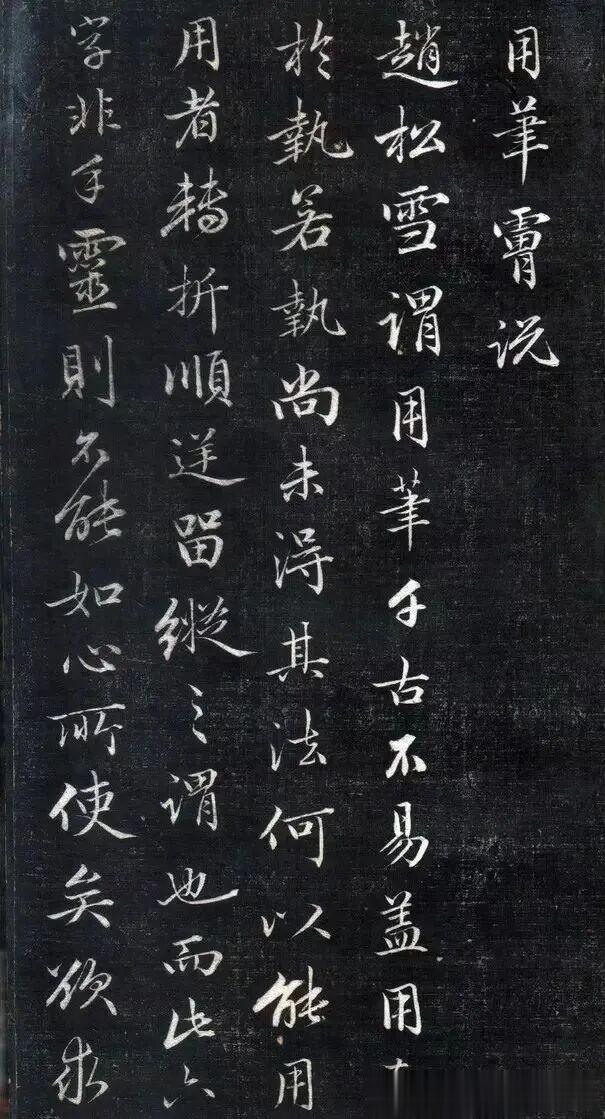 用筆膚说
趙松雪謂用筆千古不易盖用
於執若執尚未得其法何以能用
用者轉折順逆留縱之謂也而此六
字非手靈則不能如心所使矣欲求